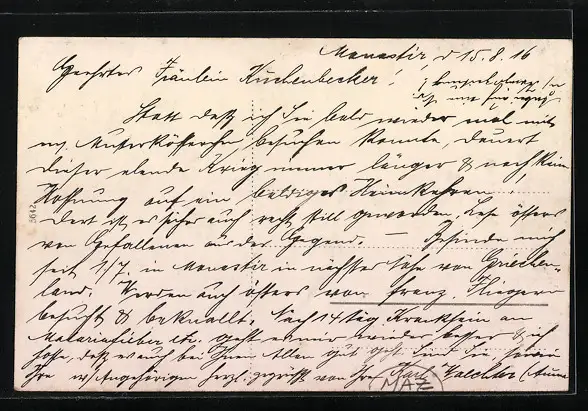 Monastir, d 15.8.16
Geehrtes Fräulein Kuchenbecker!
Statt daß ich Sie bald wieder mal mit
m. Musterkoffer besuchen konnte, dauert
dieser elende Krieg immer länger & noch kein
Hoffnung auf ein baldiges Heimkehren!
Dort ist es sicher auch recht still geworden. Lese öfters
von Gefallenen aus der Gegend. — Befinde mich
seit 1/7. in Monastir in nächster Nähe von Griechen-
land. Werden auch öfters von franz. Flieger
besucht & beknallt. Nach 14 täg. Kranksein an
Malariafieber etc. geht es mir wieder besser & ich
hoffe, daß es auch bei Ihnen Allen gut geht. Sind Sie
Ihre w/ Angehörigen herzl. gegrüßt von Ihr Karl
5642
MAZ